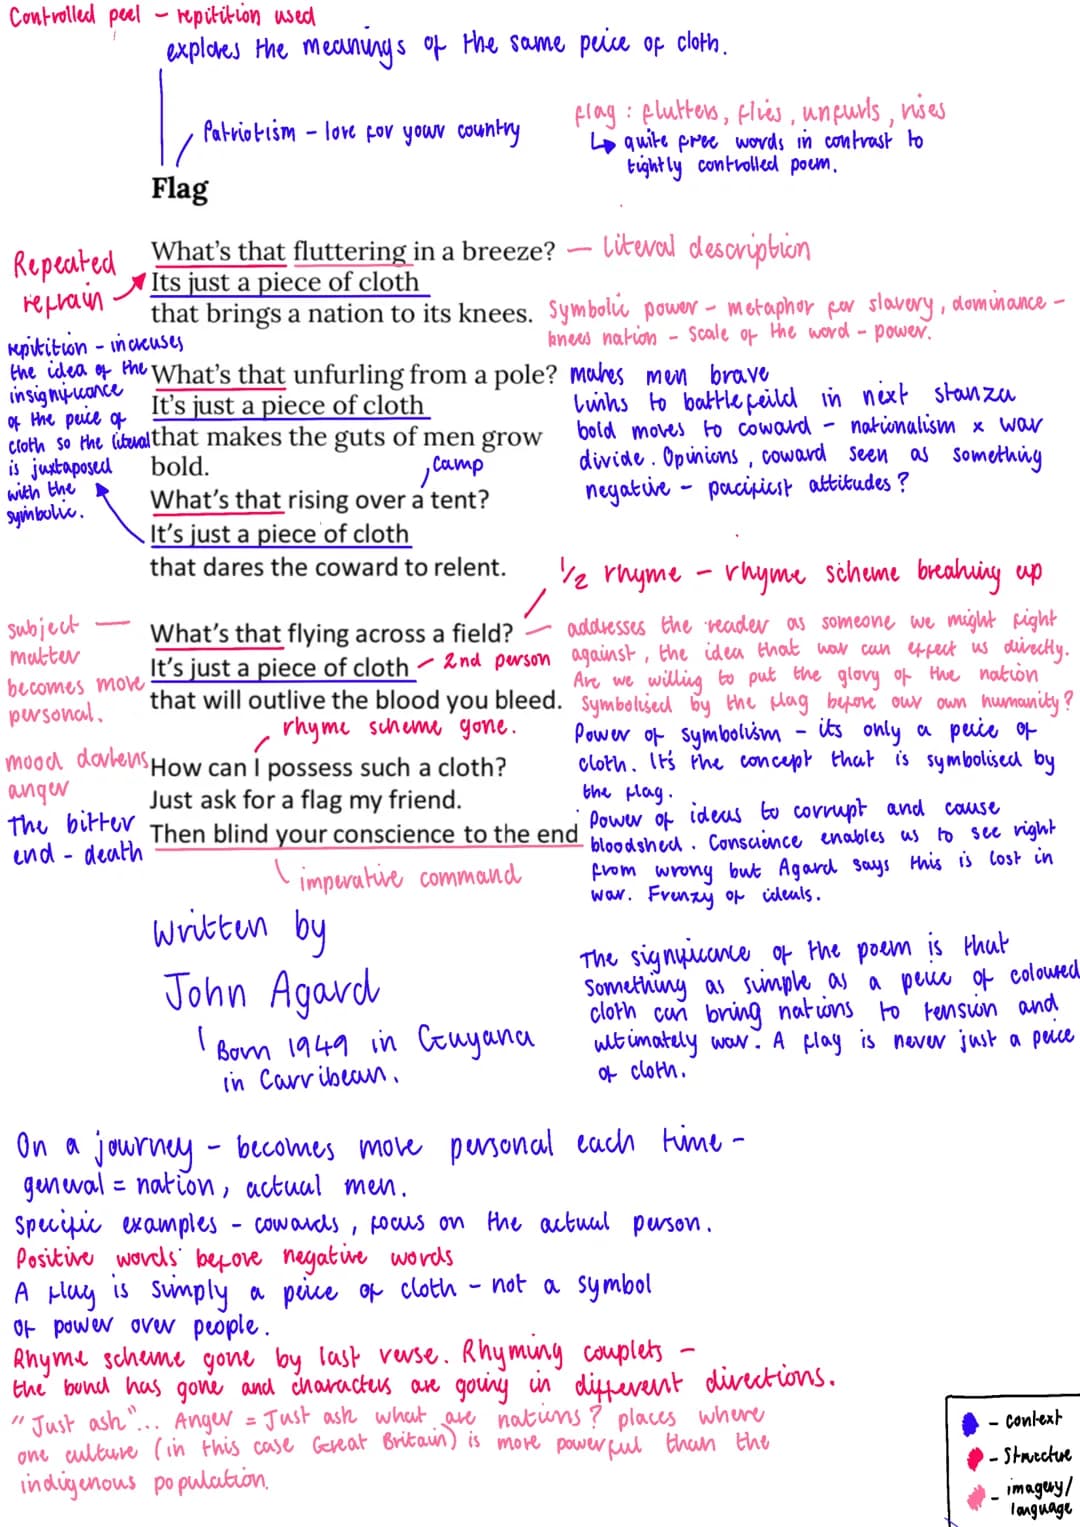 Controlled peel – repitition used
explores the meanings of the same peice of cloth.
Patriotism – love for your country
flag : flutters, flies, unfurls, rises
↳ quite free words in contrast to
tightly controlled poem.
Flag
What's that fluttering in a breeze? — literal description
Its just a piece of cloth
that brings a nation to its knees.
Repeated
refrain
Symbolic power – metaphor for slavery, dominance –
knees nation – scale of the word – power.
repitition – increases
the idea of the
insignificance
of the peice of
cloth so the literal
is juxtaposed
with the
symbolic.
What's that unfurling from a pole?
It's just a piece of cloth
that makes the guts of men grow
bold.
makes men brave
links to battlefeild in next stanza
bold moves to coward – nationalism x war
divide. Opinions, coward seen as something
negative – pacifist attitudes?
camp
What's that rising over a tent?
It's just a piece of cloth
that dares the coward to relent.
1/2 rhyme – rhyme scheme breaking up
subject
matter
becomes more
personal.
What's that flying across a field?
It's just a piece of cloth – 2nd person
that will outlive the blood you bleed.
addresses the reader as someone we might fight
against, the idea that war can effect us directly.
Are we willing to put the glory of the nation
symbolised by the flag before our own humanity?
rhyme scheme gone.
mood darkens
anger
The bitter
end – death
How can I possess such a cloth?
Just ask for a flag my friend.
Then blind your conscience to the end
imperative command
Power of symbolism – its only a peice of
cloth. It's the concept that is symbolised by
the flag.
Power of ideas to corrupt and cause
bloodshed. Conscience enables us to see right
from wrong but Agard says this is lost in
war. Frenzy of ideals.
Written by
John Agard
Born 1949 in Guyana
in Carribean.
The significance of the poem is that
something as simple as a peice of coloured
cloth can bring nations to tension and
ultimately war. A flag is never just a peice
of cloth.
On a journey – becomes more personal each time –
general = nation, actual men.
Specific examples – cowards, focus on the actual person.
Positive words before negative words
A flag is simply a peice of cloth – not a symbol
of power over people.
Rhyme scheme gone by last verse. Rhyming couplets –
the bond has gone and characters are going in different directions.
"Just ask"... Anger = Just ask what are nations? places where
one culture (in this case Great Britain) is more powerful than the
indigenous population.
– context
– Structure
– imagery/
language